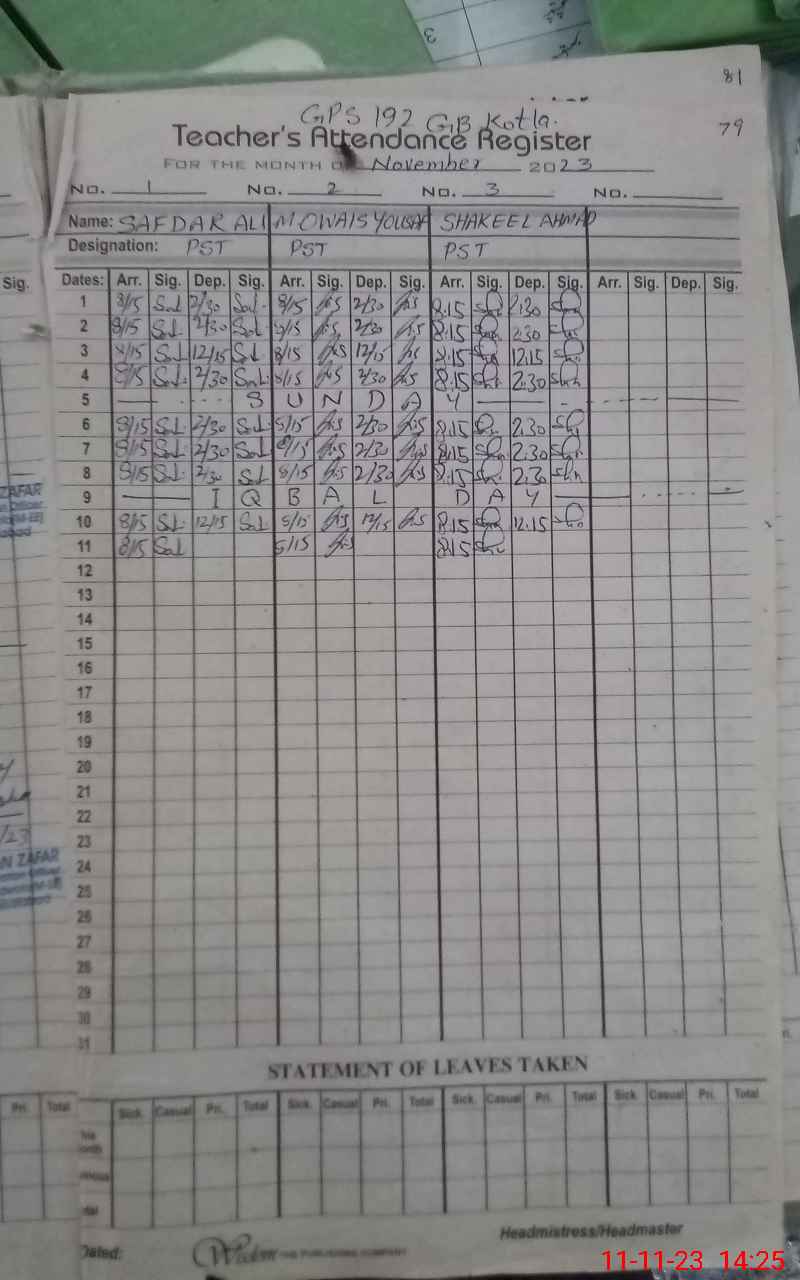 81
79
GPS 192 GB Kotla.
Teacher's Attendance Register
FOR THE MONTH OF November 2023
No. 1 No. 2 No. 3 No.
Name: SAFDAR ALI M OWAIS YOUSAF SHAKEEL AHMAD
Designation: PST PST PST
Sig. Dates: Arr. Sig. Dep. Sig. Arr. Sig. Dep. Sig. Arr. Sig. Dep. Sig. Arr. Sig. Dep. Sig.
1 8/15 2/30 8/15 2/30 8.15 2.30
2 8/15 2/30 8/15 2/30 8.15 2.30
3 8/15 12/15 8/15 12/15 8.15 12.15
4 8/15 2/30 8/15 2/30 8.15 2.30
5 S U N D A Y
6 8/15 2/30 8/15 2/30 8.15 2.30
7 8/15 2/30 8/15 2/30 8.15 2.30
8 8/15 2/30 8/15 2/30 8.15 2.30
9 I Q B A L D A Y
10 8/15 12/15 8/15 12/15 8.15 12.15
11 8/15 8/15 8.15
12
13
14
15
16
17
18
19
20
21
22
23
24
25
26
27
28
29
30
31
ZAFAR
/23
ZAFAR
STATEMENT OF LEAVES TAKEN
Pri. Total Sick Casual Pri. Total Sick Casual Pri. Total Sick Casual Pri. Total Sick Casual Pri. Total
Headmistress/Headmaster
Dated: Wisdom THE PUBLISHING COMPANY
11-11-23 14:25